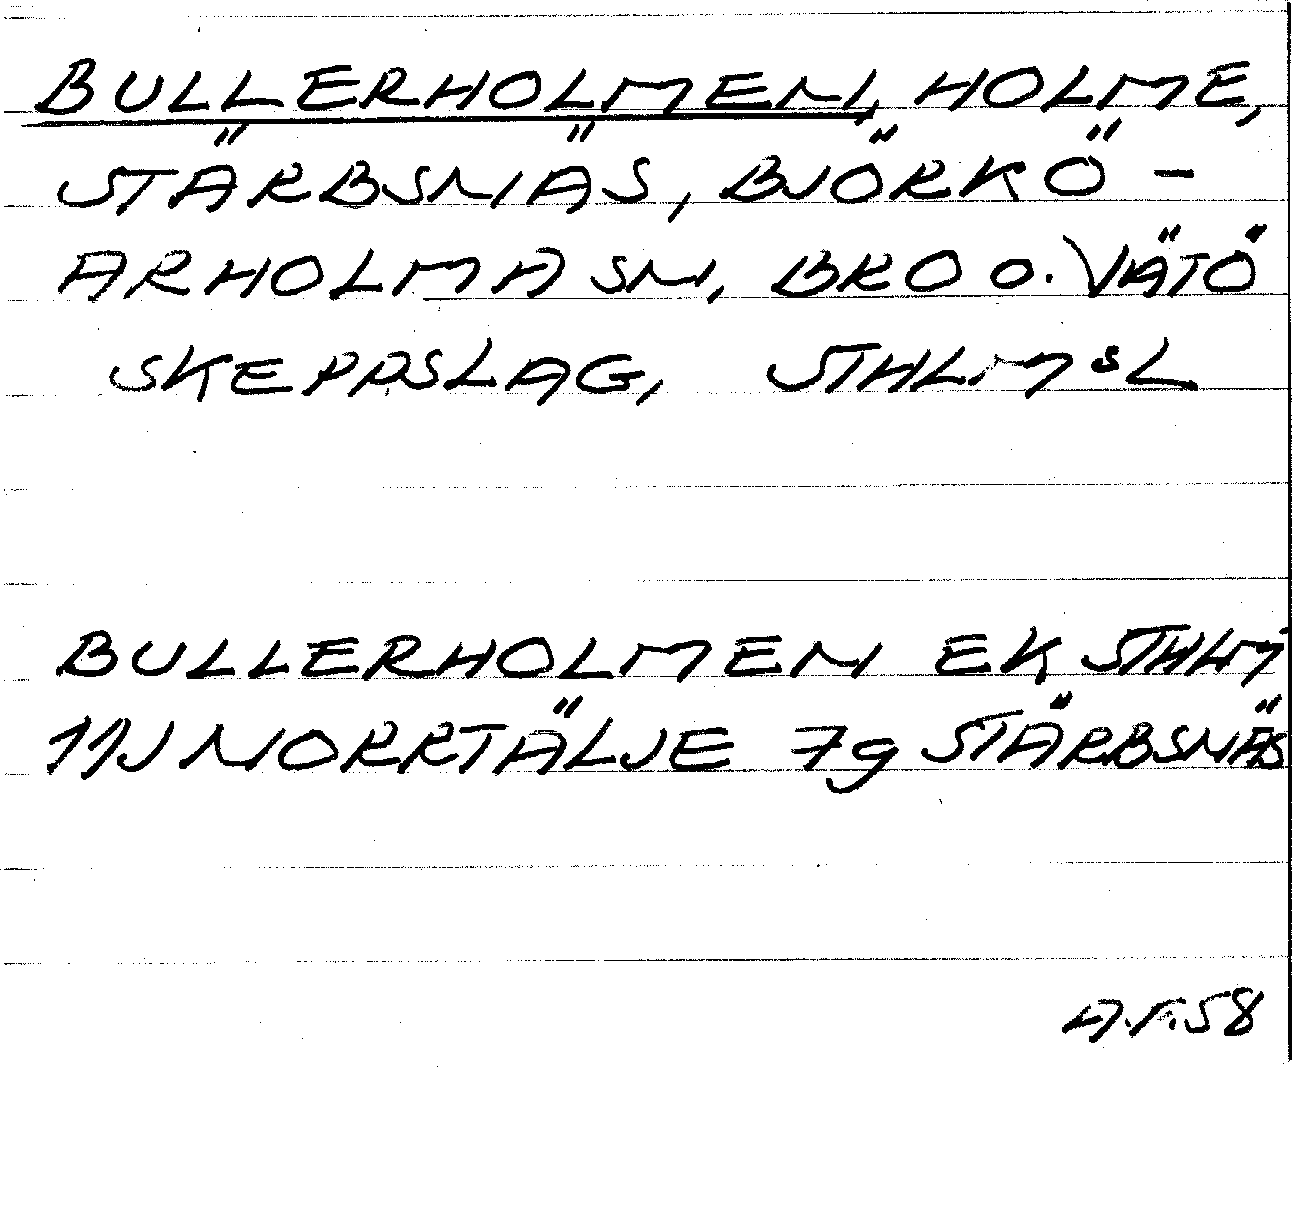 BULLERHOLMEN, HOLME,
STÄRBSNÄS, BJÖRKÖ-
ARHOLMA SN, BRO O. VÄTÖ
SKEPPSLAG, STHLMSL
BULLERHOLMEN EK STHLM
11J NORRTÄLJE 7g STÄRBSNÄS
A.F.58